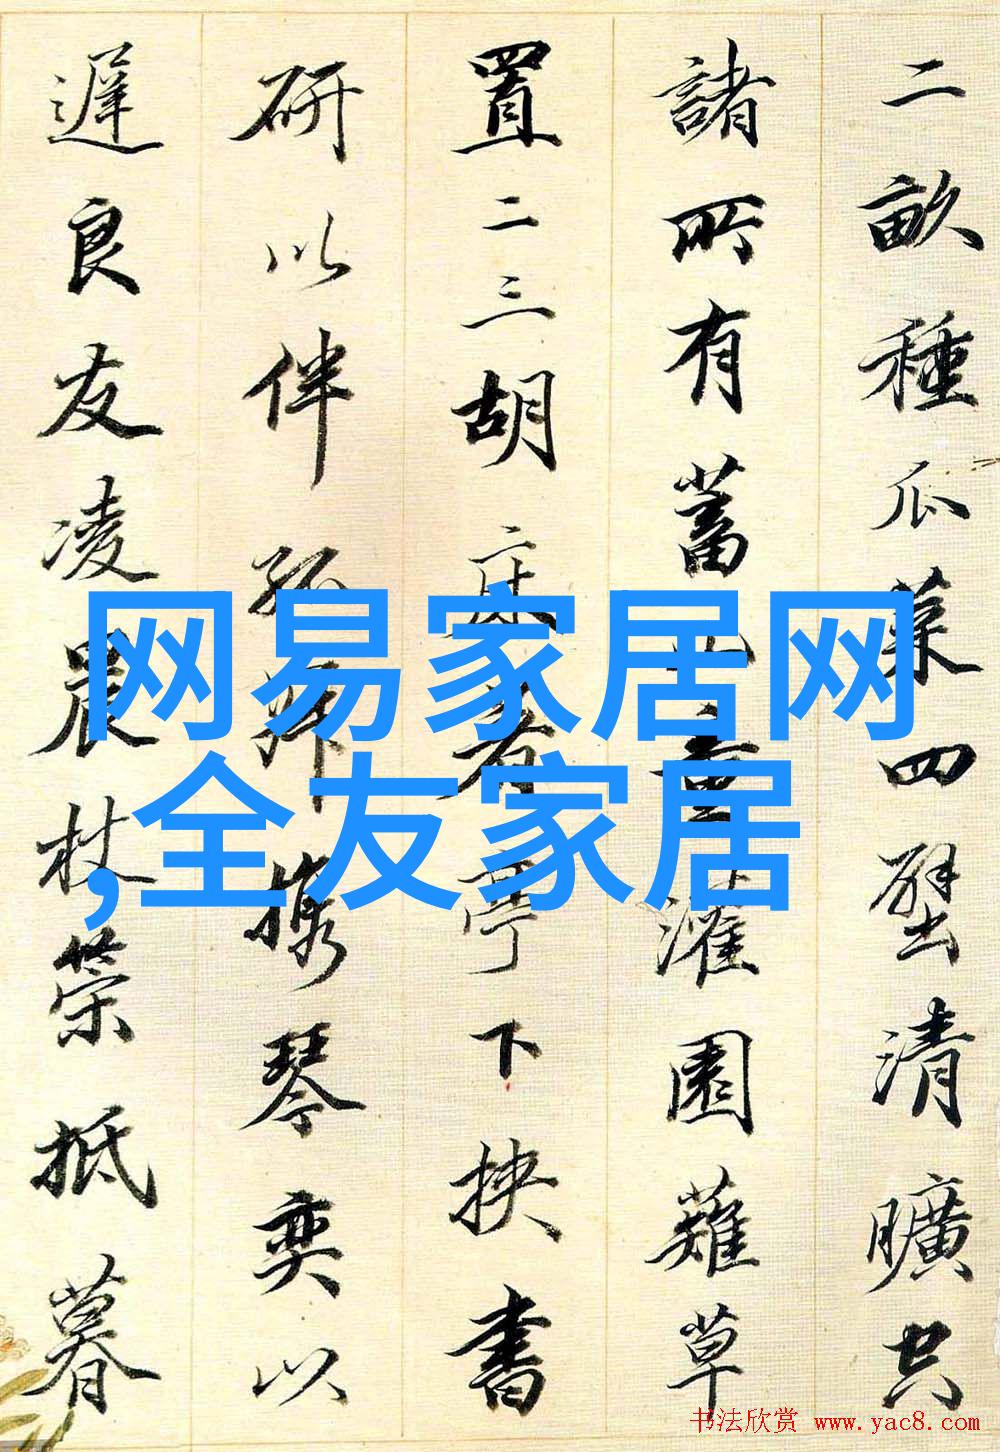 二畝種瓜菜四壁清曠空
諸所有蓄山童灌園薙草
置二三胡床着亭下挾書
研以伴孤寂携琴奕以
遲良友凌晨杖策抵暮
网易家居网
,全友家居
书法欣赏 www.yac8.com